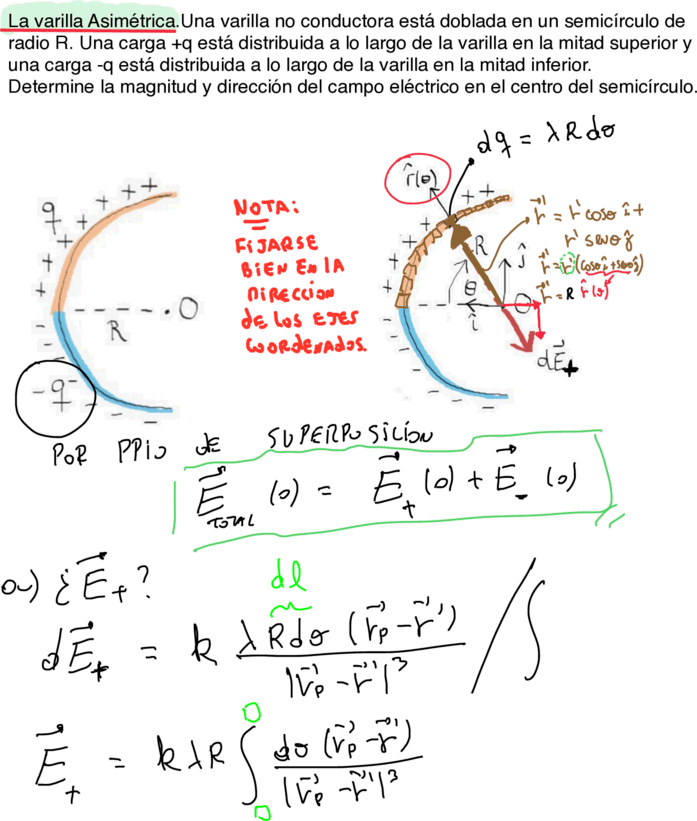 La varilla Asimétrica.Una varilla no conductora está doblada en un semicírculo de
radio R. Una carga +q está distribuida a lo largo de la varilla en la mitad superior y
una carga -q está distribuida a lo largo de la varilla en la mitad inferior.
Determine la magnitud y dirección del campo eléctrico en el centro del semicírculo.
dq = λ R dθ
r̂(θ)
q
+ + + + + + + +
R
O
-q
- - - - - - - -
NOTA:
FIJARSE
BIEN EN LA
DIRECCION
DE LOS EJES
COORDENADOS.
+ + + + + + +
R
θ
ĵ
î
O
- - - - - - -
r⃗' = r' cosθ î +
r' senθ ĵ
r⃗' = r' (cosθ î + senθ ĵ)
r⃗' = R r̂(θ)
dE⃗+
POR PPIO DE SUPERPOSICIÓN
E⃗TOTAL (0) = E⃗+ (0) + E⃗- (0)
a) ¿E⃗+?
dl
dE⃗+ = k λ R dθ (r⃗p - r⃗') / |r⃗p - r⃗'|³ / ∫
E⃗+ = k λ R ∫ dθ (r⃗p - r⃗') / |r⃗p - r⃗'|³